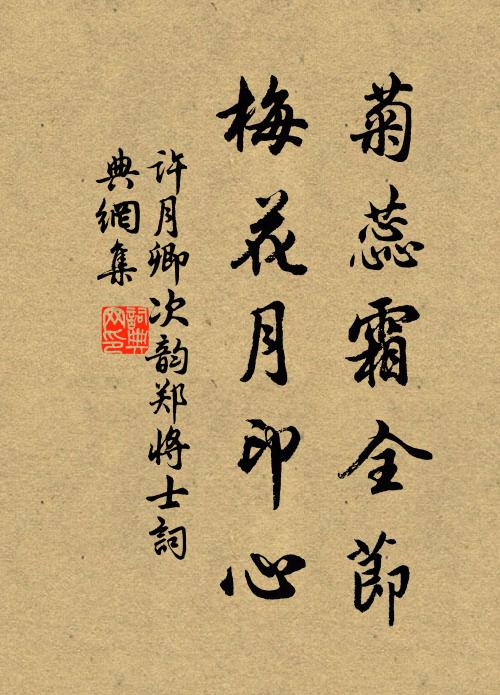 菊蕊霜全節
梅花月印心
许月卿次韵郑将士詞
典網集
詞典网印